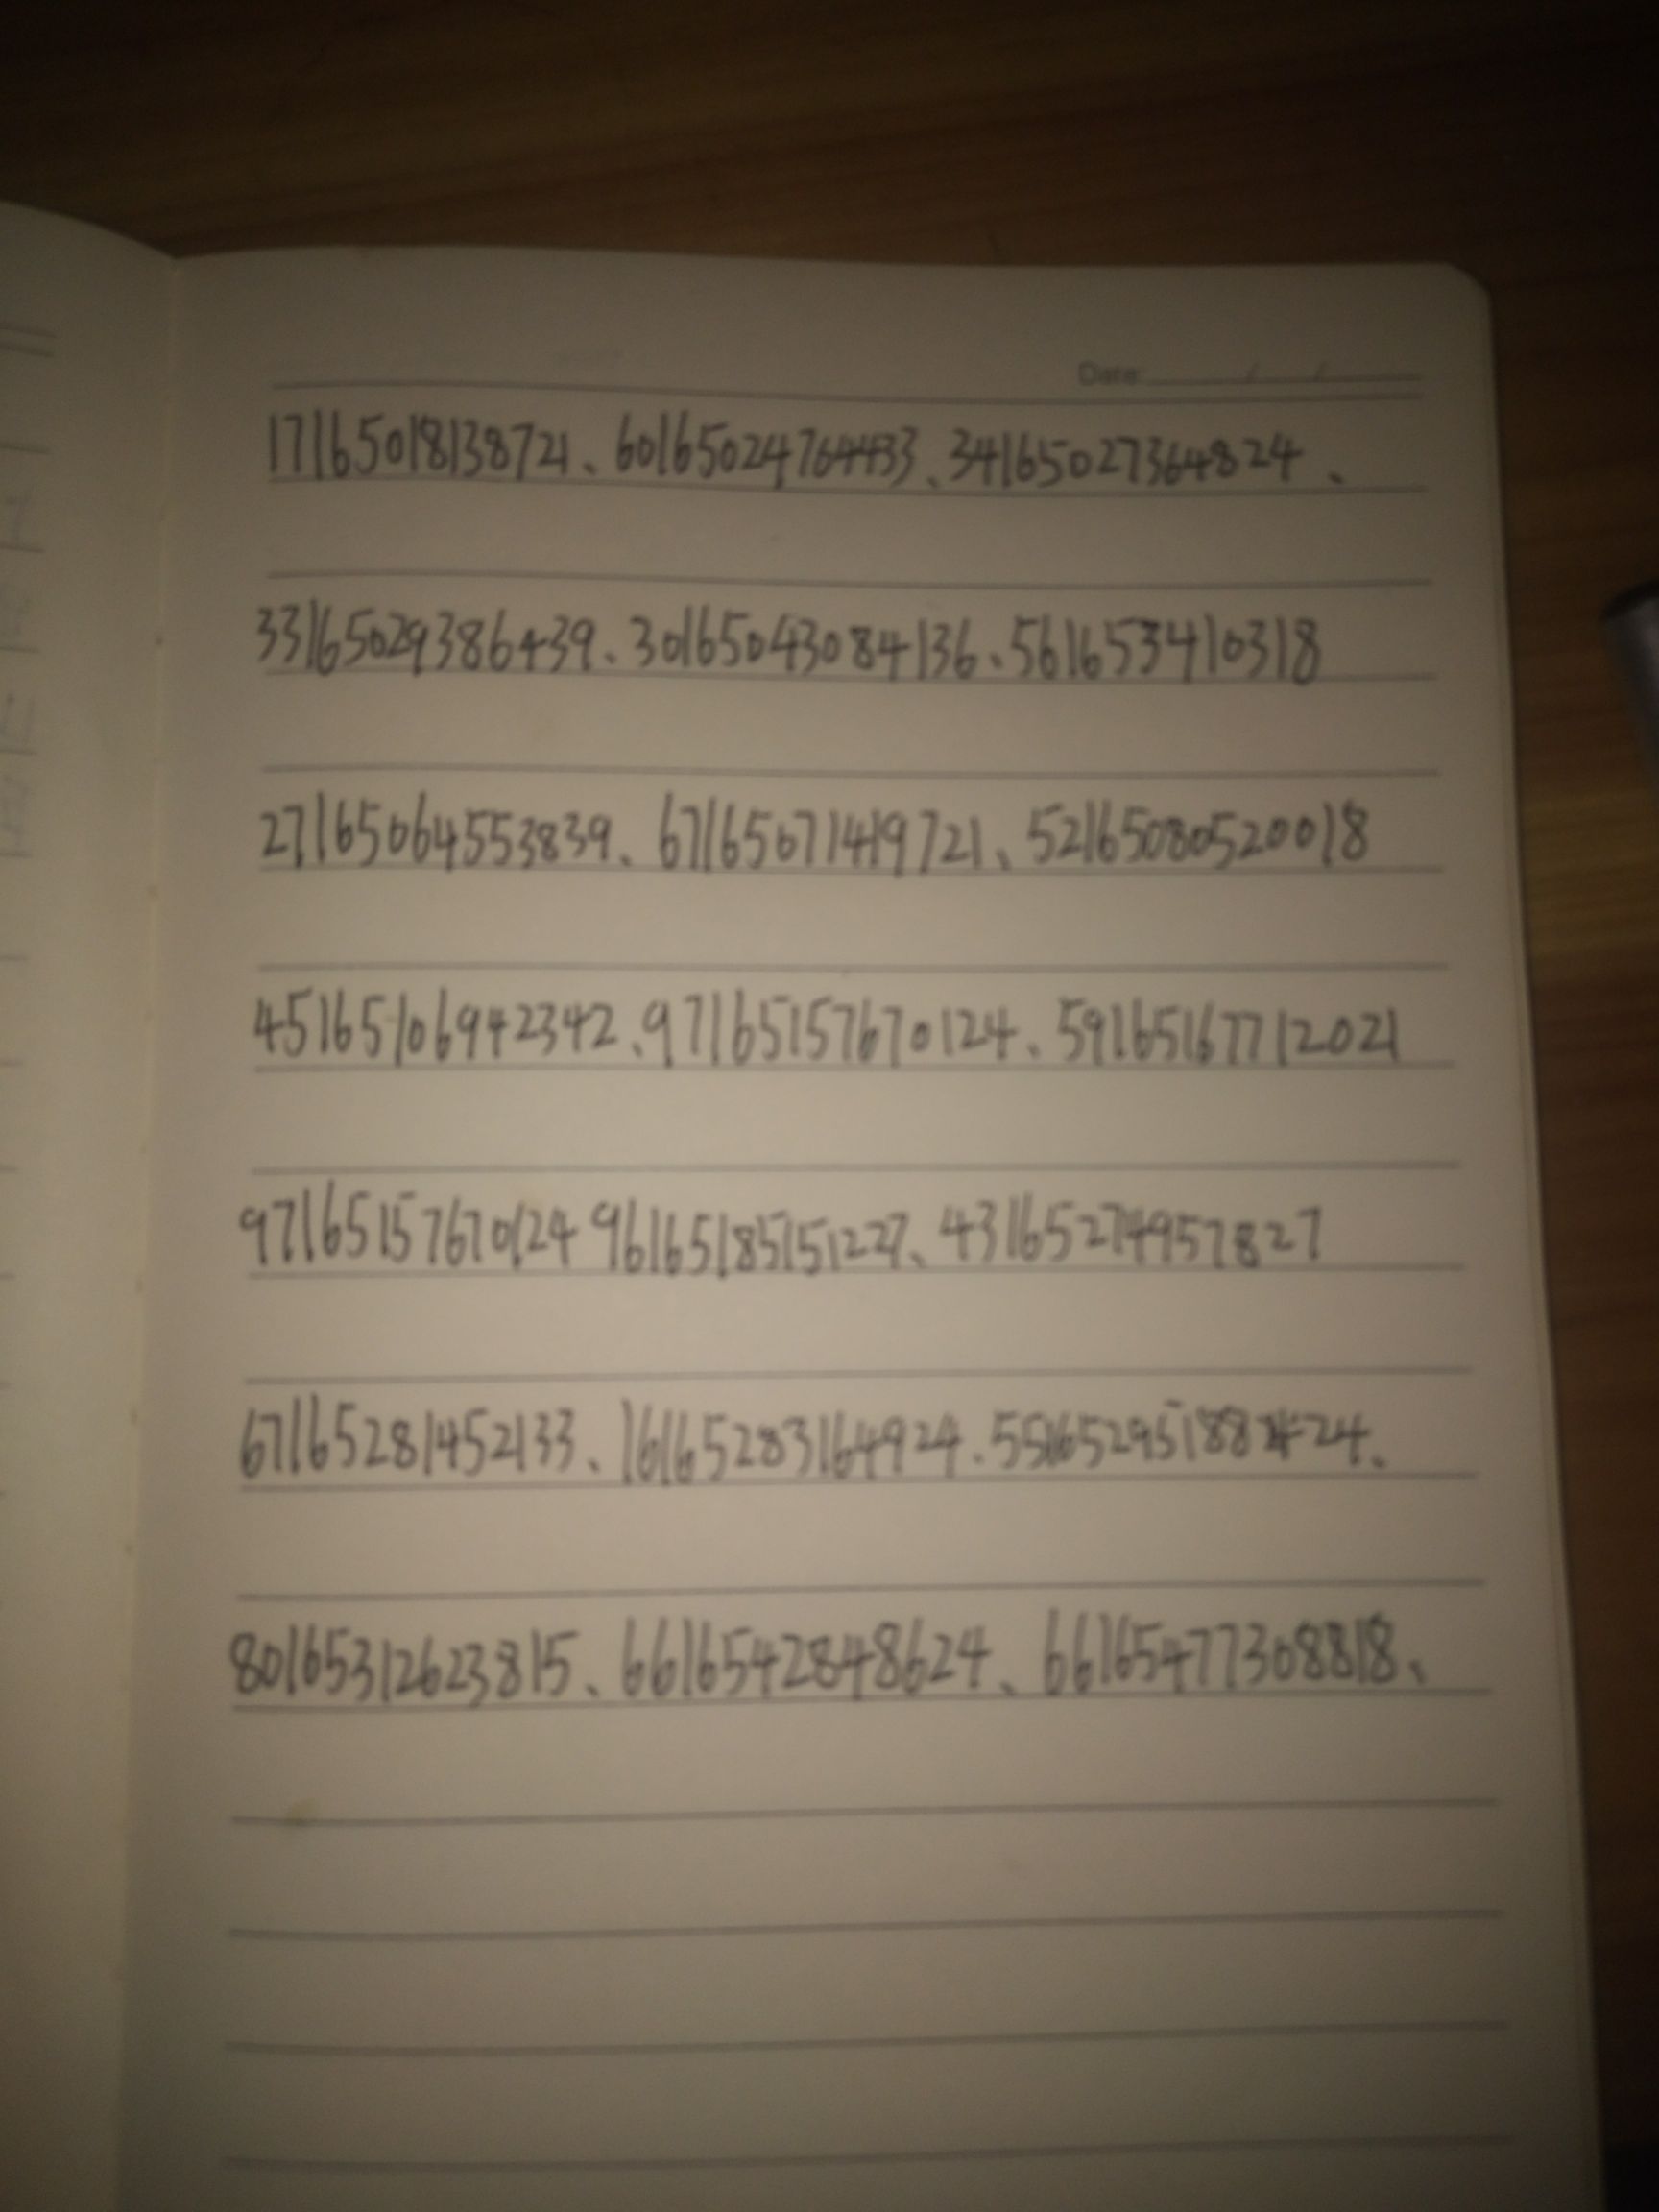 Date: / /
17165018138721、60165024764433、34165027364824、
33165029386439、30165043084136、561653410318
271650645538 39、67165071419721、52165080520018
45165106942342、971651576701 24、59165167712021
971651576701 24 961651851512 27、431652749578 27
671652814521 33、161652831649 24.
801653126238 15、661654284862 4、661654773088 18、